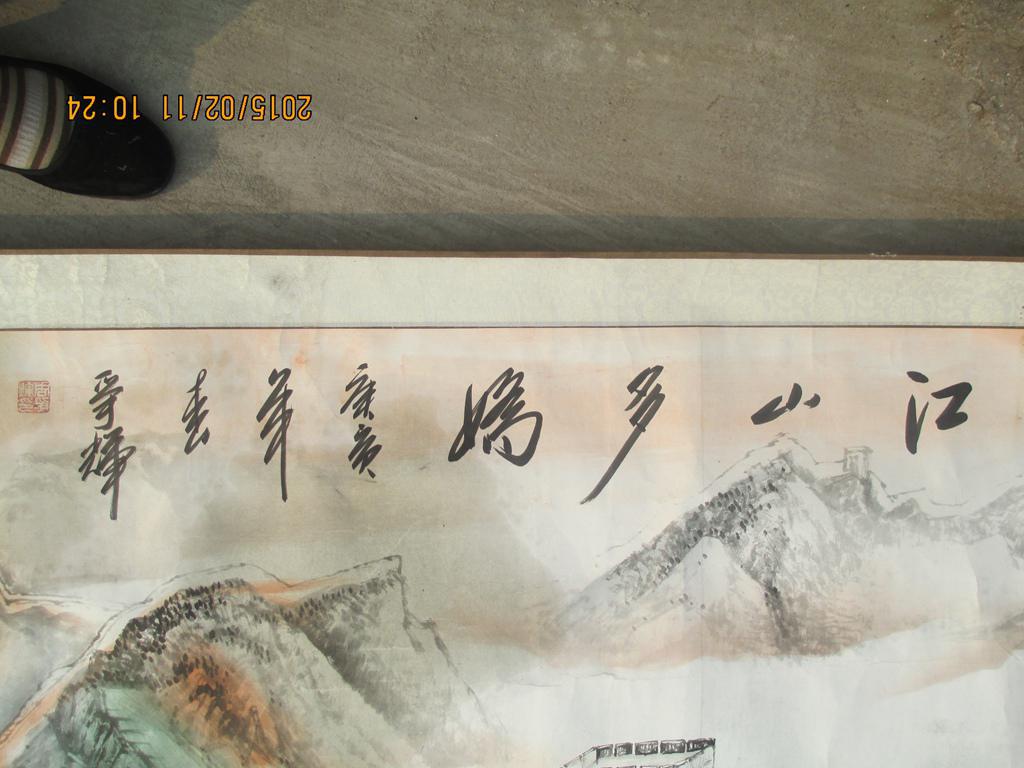 江山多嬌
庚寅
年春
哥輝
2015/02/11 10:24